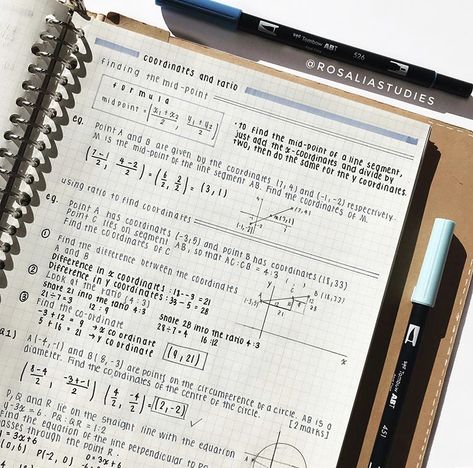 coordinates and ratio
finding the mid-point
formula
midpoint = (x₁+x₂/2, y₁+y₂/2)
:to find the mid-point of a line segment,
just add the x-coordinates and divide by
two, then do the same for the y coordinates.
eg. Point A and B are given by the coordinates (7, 4) and (-1, -2) respectively.
M is the mid-point of the line segment AB. Find the coordinates of M.
(7-1/2, 4-2/2) = (6/2, 2/2) = (3, 1)
using ratio to find coordinates
eg. Point A has coordinates (-3, 5) and point B has coordinates (18, 33)
Point C lies on segment AB, so that AC:CB = 4:3
Find the coordinates of C.
① Find the difference between the coordinates
A and B
Difference in x coordinates: 18--3 = 21
Difference in y coordinates: 33-5 = 28
② Look at the ratio (4:3)
share 21 into the ratio 4:3
21÷7=3 12:9
share 28 into the ratio 4:3
28÷7=4 16:12
③ Find the co-ordinate
-3+12 = 9 → x co-ordinate
5+16 = 21 → y coordinate
(9,21)
B (18,33)
(-3,5)
x
a1) A(-4,-1) and B(8,-3) are points on the circumference of a circle. AB is a
diameter. Find the coordinates of the centre of the circle. [2 marks]
(8-4/2, -3+-1/2) (4/2, -4/2) = (2,-2)
P, Q and R lie on the straight line with the equation
y-3x=6. PQ:QR = 1:2
Find the equation of the line perpendicular to
passes through the point R.
y=3x+6
(0,6) P(-2,0) 0=3x+6
@ROSALIASTUDIES
Tombow ABT 526
ABT 451